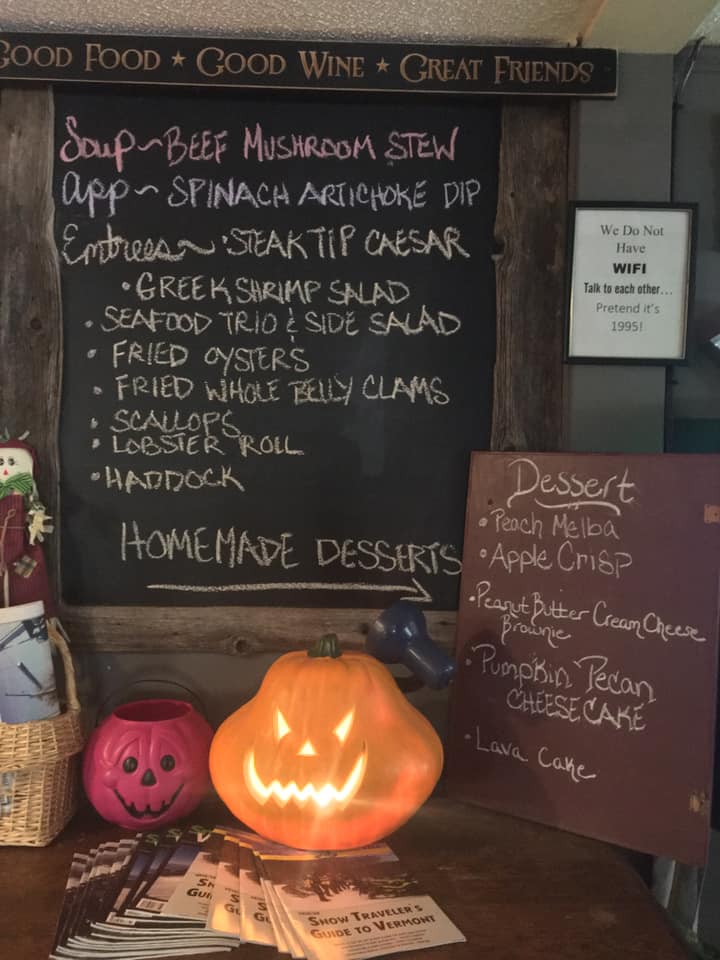 GOOD FOOD ★ GOOD WINE ★ GREAT FRIENDS
Soup ~ BEEF MUSHROOM STEW
App ~ SPINACH ARTICHOKE DIP
Entrees ~ • STEAK TIP CAESAR
• GREEK SHRIMP SALAD
• SEAFOOD TRIO & SIDE SALAD
• FRIED OYSTERS
• FRIED WHOLE BELLY CLAMS
• SCALLOPS
• LOBSTER ROLL
• HADDOCK
HOMEMADE DESSERTS
We Do Not
Have
WIFI
Talk to each other...
Pretend it's
1995!
Dessert
• Peach Melba
• Apple Crisp
• Peanut Butter Cream Cheese
Brownie
• Pumpkin Pecan
CHEESECAKE
• Lava Cake
SNOW TRAVELER'S
GUIDE TO VERMONT